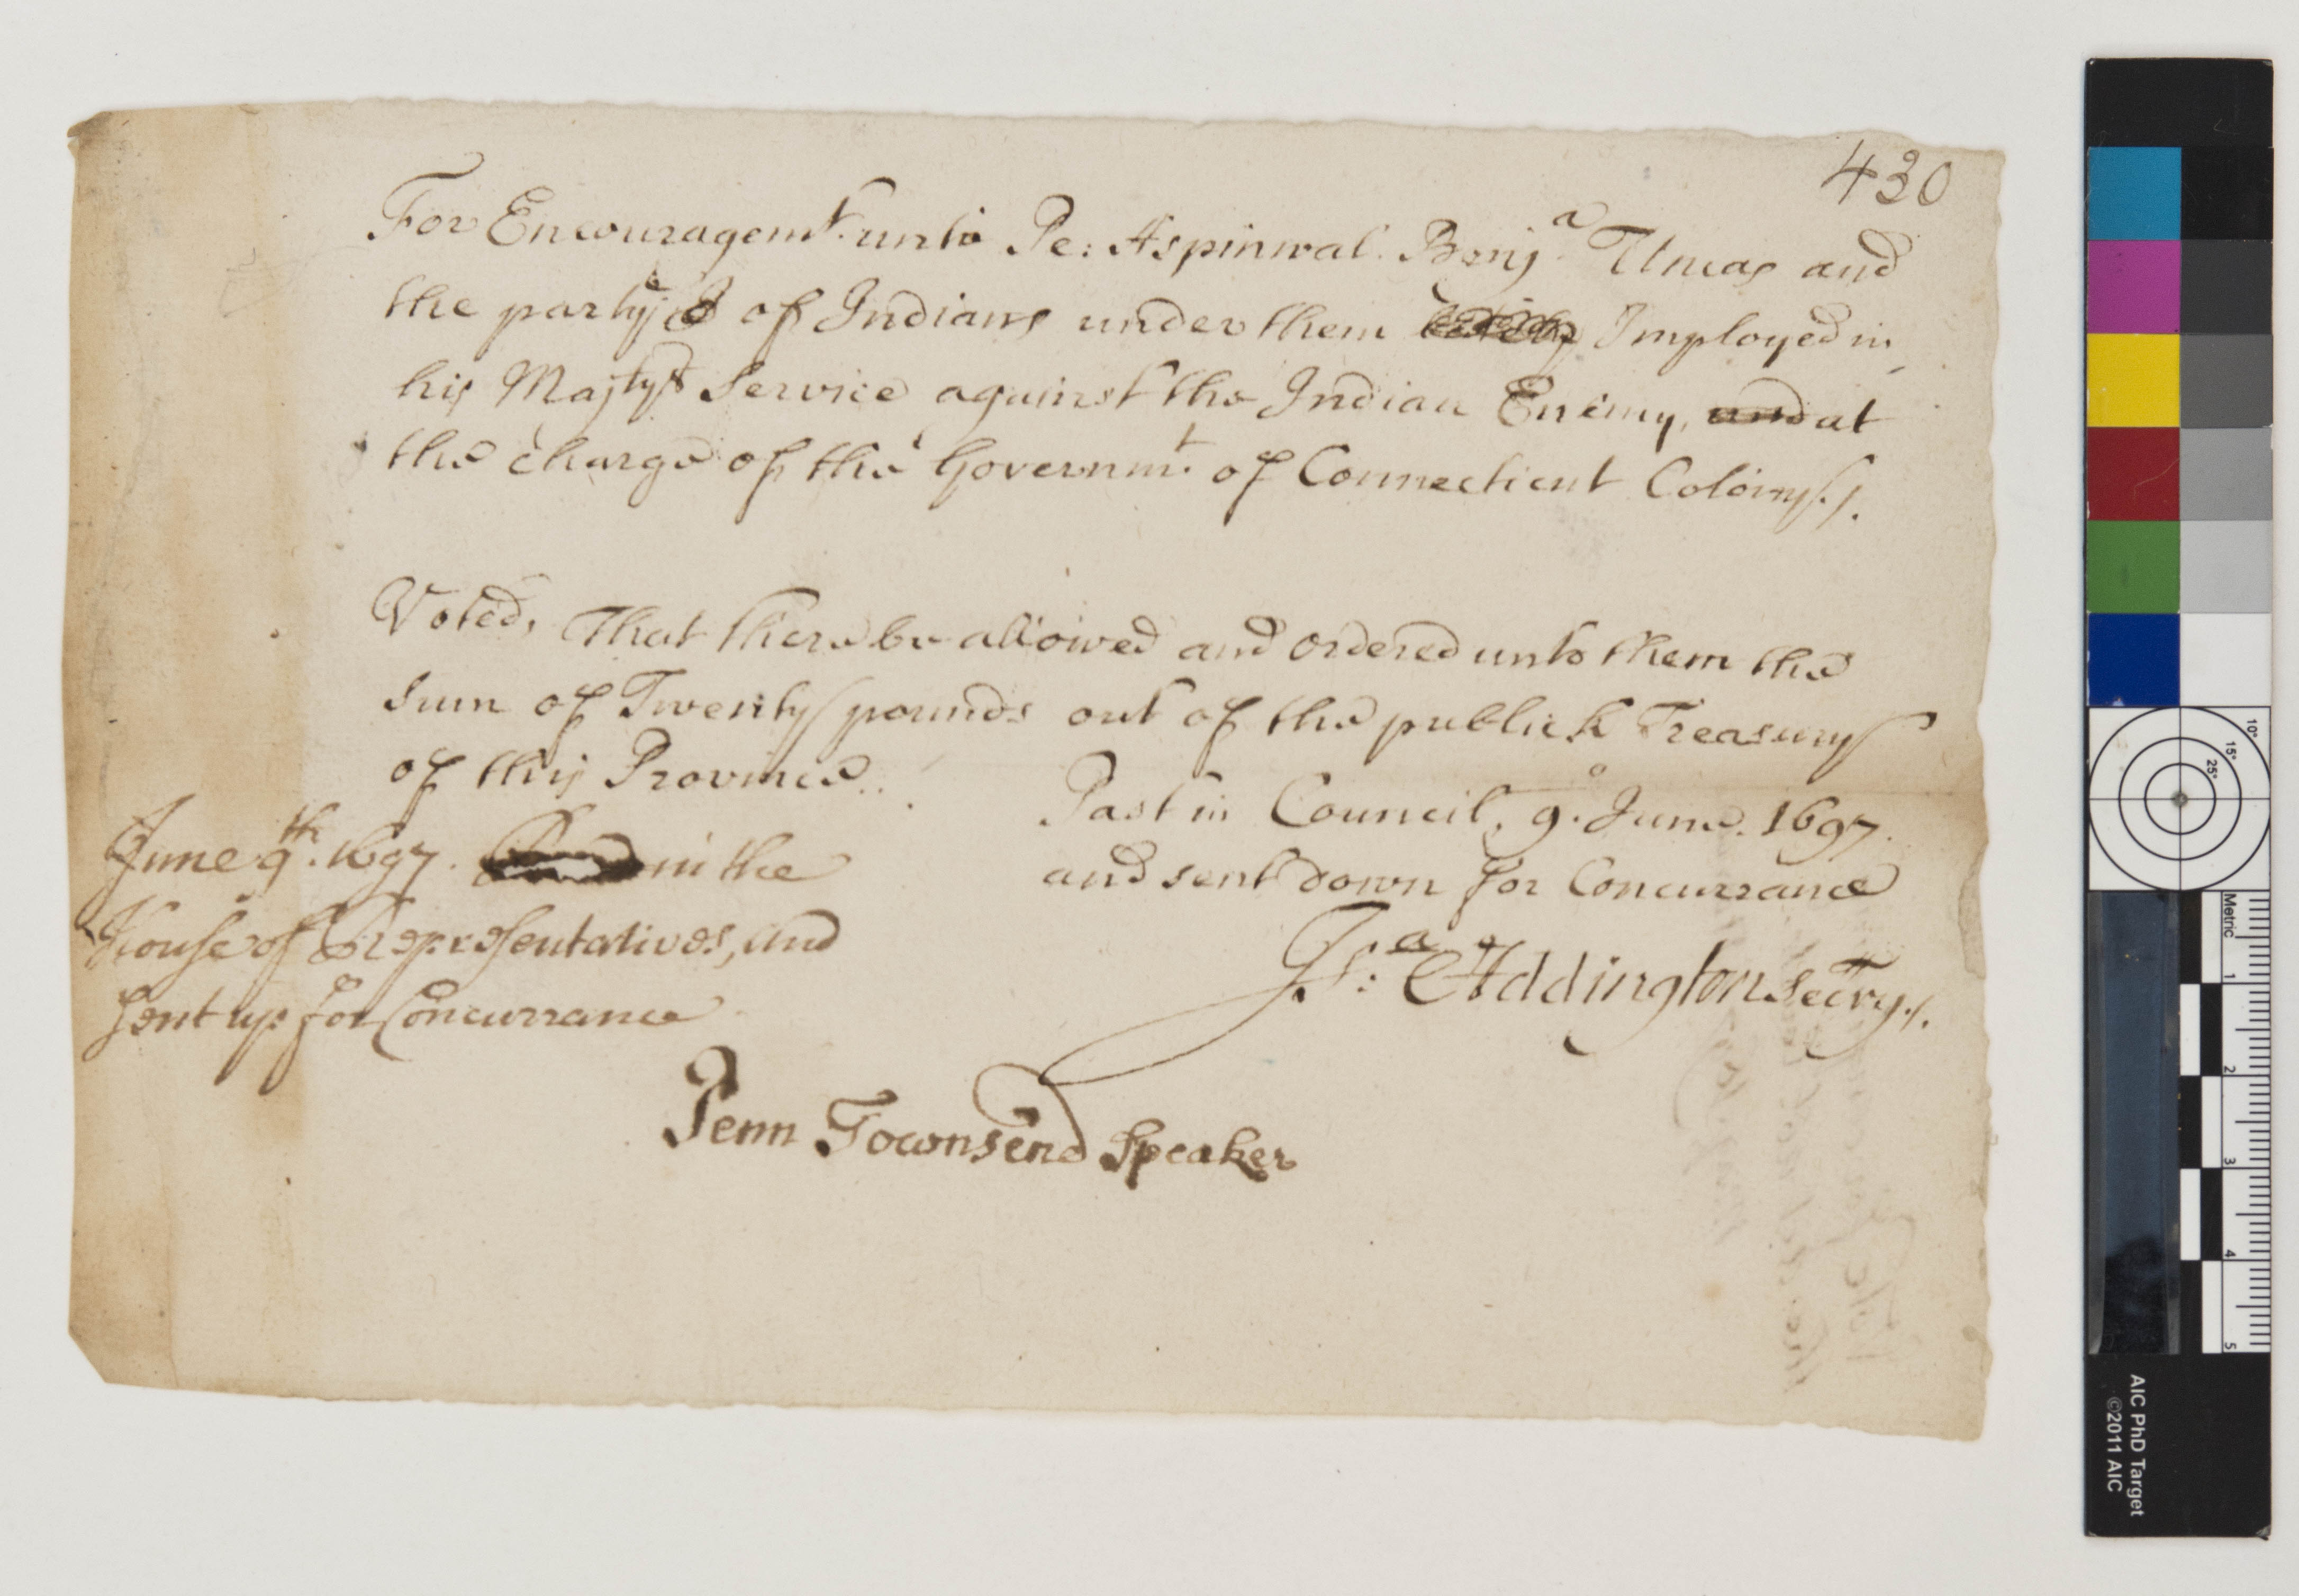 430
For Encouragemt. unto Pe: Aspinwal. Benja. Uncas and
the party of Indians under them Imployed in
his Majtys Service against the Indian Enemy, and at
the charge of the Governmt. of Connecticut Colony./.
Voted, That there be allowed and ordered unto them the
sum of Twenty pounds out of the publick Treasury
of this Province..
Past in Council, 9o. June. 1697.
and sent down for Concurrance
Jsa: Addington Secry./.
June 9th. 1697. in the
House of Representatives, and
sent up for Concurrance
Penn Townsend Speaker
10°
15°
25°
Metric
1
2
3
4
5
AIC PhD Target
©2011 AIC